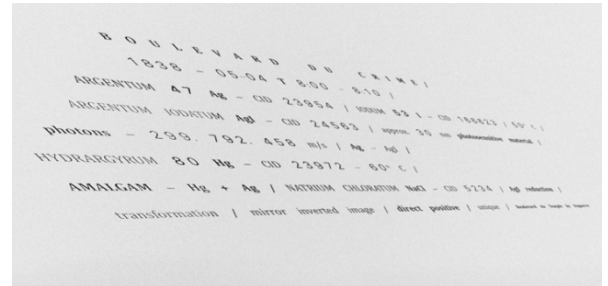 BOULEVARD DU CRIME /
1838 – 05.04 T 8:00 – 8:10 /
ARGENTUM 47 Ag – CID 23954 / IODIUM 53 I – CID 166623 / 60° C /
ARGENTUM IODATUM AgI – CID 24563 / approx. 30 nm photosensitive material /
photons – 299. 792. 458 m/s / Ag – AgI /
HYDRARGYRUM 80 Hg – CID 23972 – 60° C /
AMALGAM – Hg + Ag / NATRIUM CHLORATUM NaCl – CID 5234 / AgI reduction /
transformation / mirror inverted image / direct positive / unique /